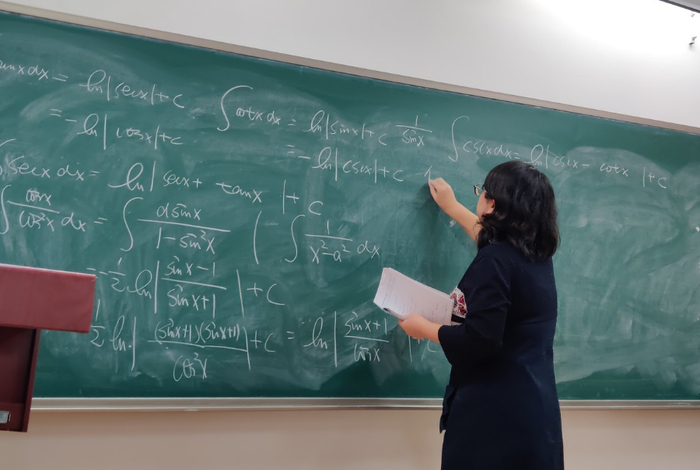 ∫tanxdx = ln|secx|+c
= -ln|cosx|+c
∫cotxdx = ln|sinx|+c 1/sinx
= -ln|cscx|+c
∫cscxdx = ln|cscx - cotx|+c
∫secxdx = ln|secx + tanx|+c
∫cosx/cos²x dx = ∫dsinx/1-sin²x ( -∫1/x²-a² dx
-1/2 ln|sinx-1/sinx+1|+c
1/2 ln|(sinx+1)(sinx+1)/cos²x|+c = ln|sinx+1/cosx|+c